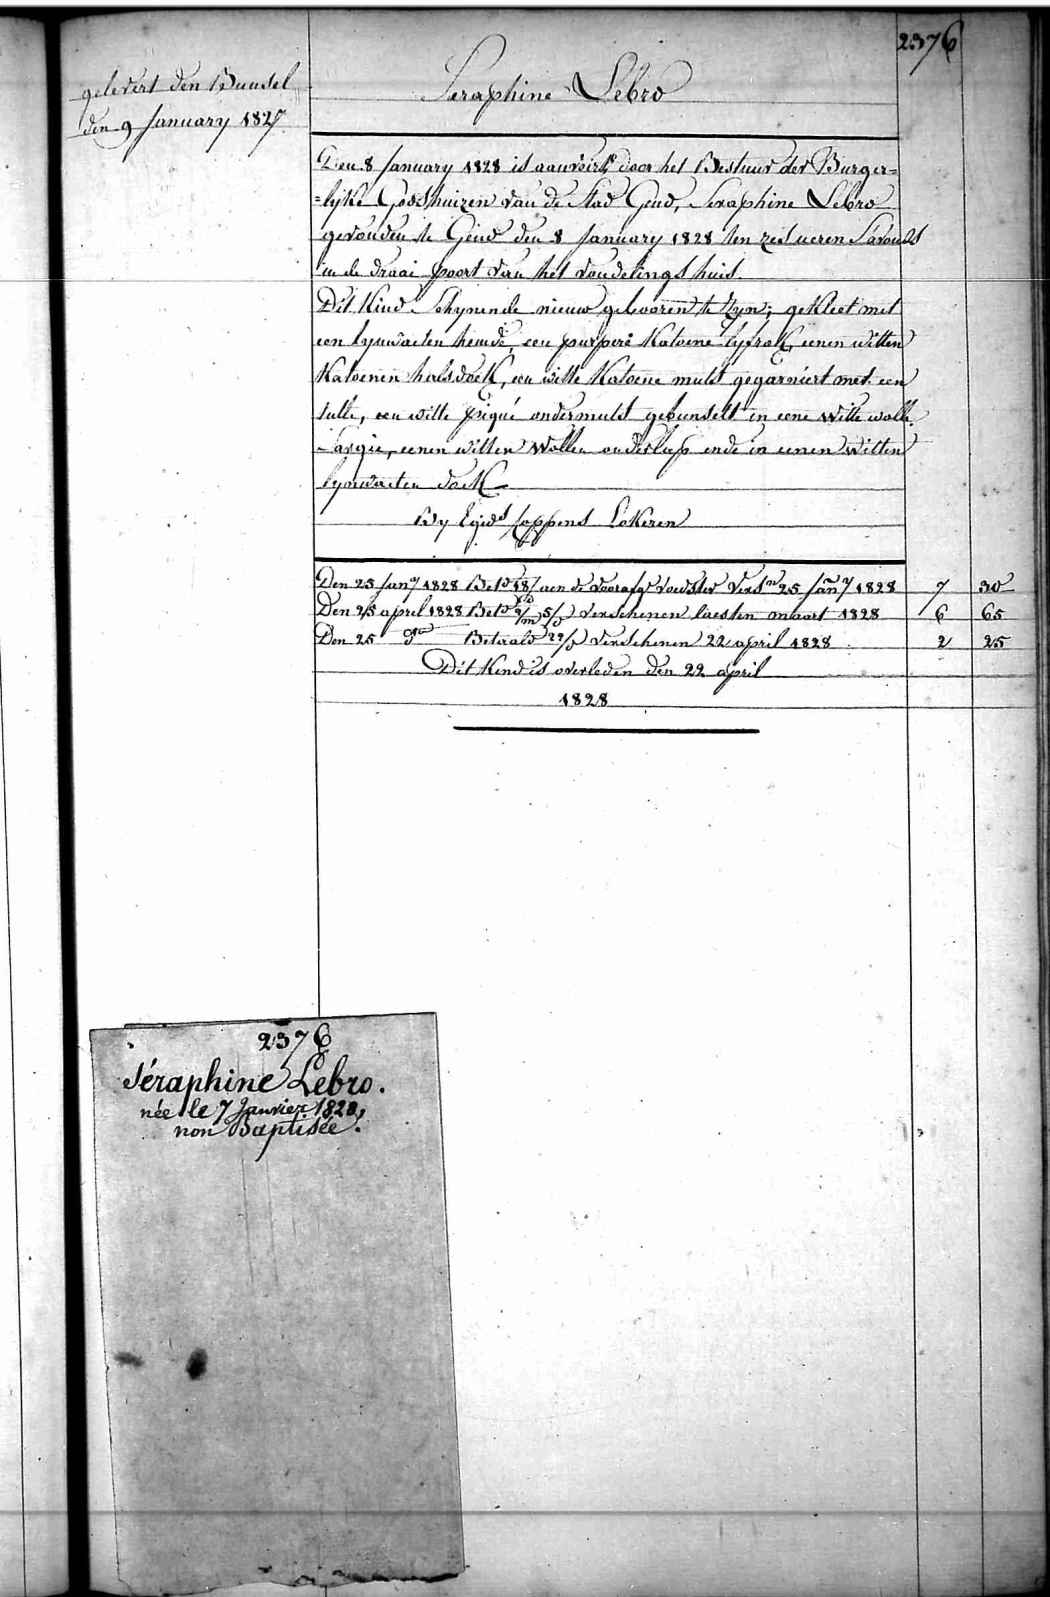 2376
gelevert den Bunsel
den 9 January 1827
Seraphine Lebro
Den 8 January 1828 is aanveird door het Bestuur der Burger=
=lyke Godshuizen van de Stad Gend, Seraphine Lebro
gevonden te Gend den 8 January 1828 ten zes ueren S'avonds
in de draai poort van het vondelingshuis.
Dit Kind Schynende nieuw gebooren te zyn; gekleet met
een lynwaeten hemde, een purpere Katoene lyfrok, eenen witten
Katoenen halsdoek, een witte Katoene muts gegarniert met een
tulle, een witte piqué ondermuts gebunselt in eene witte wolle
Sargie, eenen witten wollen onderleep ende in eenen witten
lynwaeten doek
By Egids Coppens Lokeren
Den 25 Jany 1828 Betd 18/ aen de voorafg voedster versn 25 Jany 1828 7 30
Den 25 april 1828 Betd 2/m 5/d verschenen laesten maart 1828 6 65
Den 25 do Betaald 22/d verschenen 22 april 1828 2 25
Dit Kind is overleden den 22 april
1828
2376
Séraphine Lebro.
née le 7 Janvier 1828,
non Baptisée.